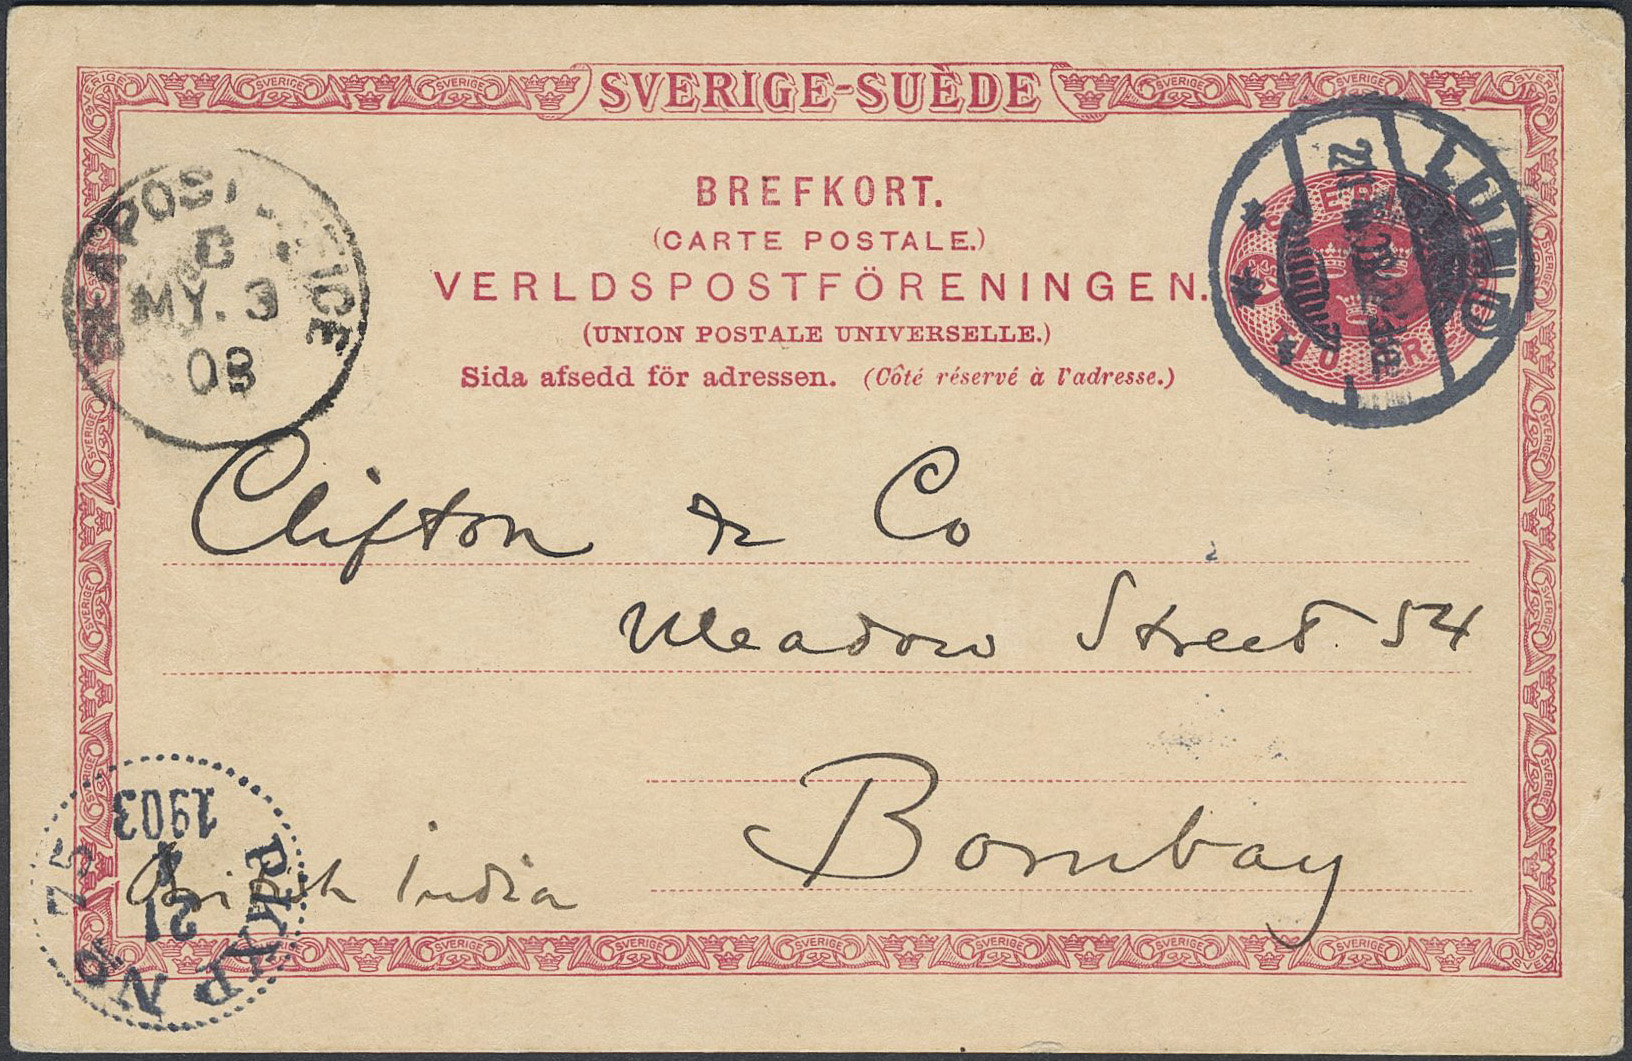 SVERIGE-SUÈDE
BREFKORT.
(CARTE POSTALE.)
VERLDSPOSTFÖRENINGEN.
(UNION POSTALE UNIVERSELLE.)
Sida afsedd för adressen. (Côté réservé à l'adresse.)
SEA POST OFFICE
C
MY. 3
03
LUND
SVERIGE
TIO ÖRE
Clifton & Co
Meadow Street. 54
Bombay
British India
PKXP No 75
21
4
1903